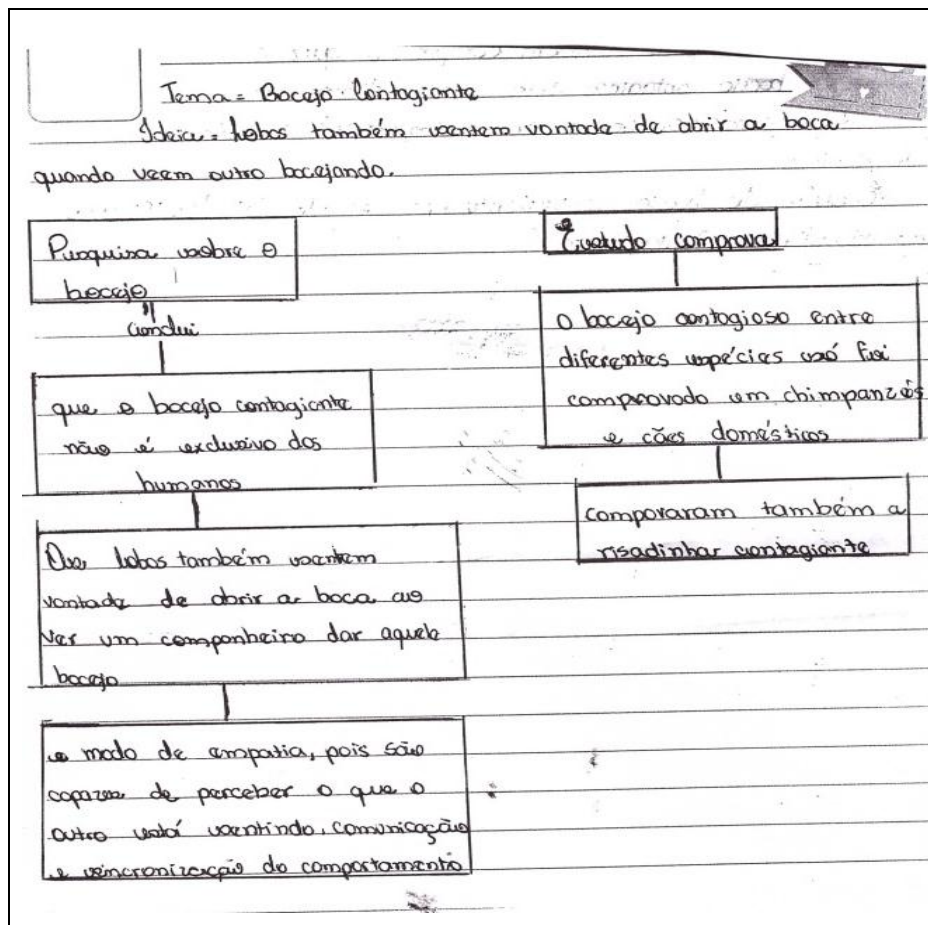 Tema = Bocejo Contagiante
Ideia = Lobos também sentem vontade de abrir a boca
quando veem outro bocejando.
Pesquisa sobre o
bocejo
conclui
que o bocejo contagiante
não é exclusivo dos
humanos
Os lobos também sentem
vontade de abrir a boca ao
ver um companheiro dar aquele
bocejo
e modo de empatia, pois são
capazes de perceber o que o
outro está sentindo, comunicação
e sincronização do comportamento
Estudo comprova
o bocejo contagioso entre
diferentes espécies só foi
comprovado em chimpanzés
e cães domésticos
compovaram também a
risadinhar contagiante